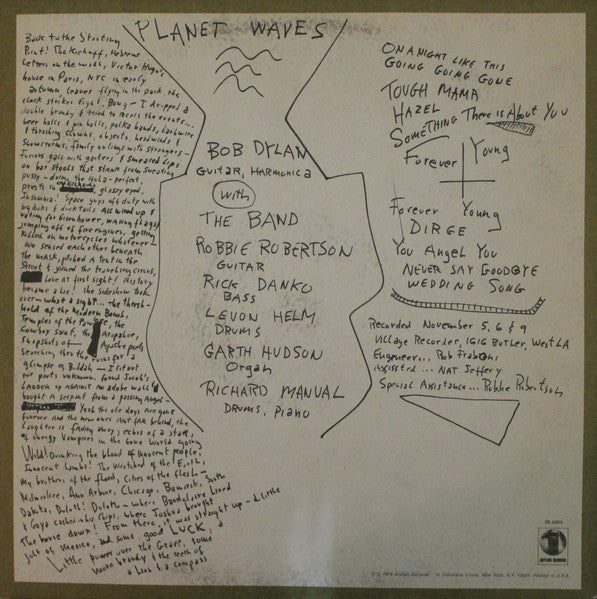 Back to the Starting
Point! The Kickoff, Hebrew
Letters on the wall, Victor Hugo's
house in Paris, NYC in early
autumn, leaves flying in the park, the
clock strikes Eight, Bong – I dropped a
double brandy & tried to recall the events...
beer halls & pin balls, polka bands, barbwire
& thrashing clowns, objects, headwinds &
Snowstorms, family outings with strangers –
Furious gals with garters & smeared Lips
on bar stools that stank from sweating
pussy – doing the Hula – perfect,
priests in glassy eyed,
Insomnia! Space guys off duty with
big dicks & ducktails All wired up &
voting for Eisenhower, waving flags &
jumping off of fire engines, getting
killed on motorcycles whatever –
We sensed each other beneath
the mask, pitched a tent in the
Street & joined the traveling circus,
Love at first sight! History
became a lie! the sideshow took
over – what a sight... The thresh-
hold of the Modern Bomb,
Temples of the the
Cowboy Saint, the Arapahoe,
snapshots of Apache poets
Searching thru the ruins for a
glimpse of Buddah – I lit out
for parts unknown, found Jacob's
Ladder up against an adobe wall &
bought A serpent from a passing Angel –
Yeah the ole days are gone
forever And the new ones Ain't far behind, the
Laughter is fading away, echos of a star,
of Energy Vampires in the Gone World going
Wild! Drinking the blood of innocent people,
Innocent Lambs! The Wretched of the Earth,
My brothers of the flood, Cities of the flesh –
Milwaukee, Ann Arbor, Chicago, Bismarck, South
Dakota, Duluth! Duluth – where Baudelaire Lived
& Goya cashed in his Chips, where Joshua brought
the house down! From there, it was straight up – a Little
jolt of Mexico, and some good LUCK, a
Little power over the Grave, some
more brandy & the teeth of
a Lion & a compass
PLANET WAVES
BOB DYLAN
Guitar, Harmonica
with
THE BAND
ROBBIE ROBERTSON
GUITAR
RICK DANKO
BASS
LEVON HELM
DRUMS
GARTH HUDSON
Organ
RICHARD MANUAL
DRUMS, Piano
ON A NIGHT LIKE THIS
GOING GOING GONE
TOUGH MAMA
HAZEL
SOMETHING There is About You
Forever Young
Forever Young
DIRGE
You Angel You
NEVER SAY GOODBYE
WEDDING SONG
Recorded November 5, 6 & 9
Village Recorder, 1616 Butler, West LA
Engineer... Rob Fraboni
Assisted... NAT Jeffery
Special Assistance... Robbie Robertson
7E-1003
ASYLUM RECORDS
1974 Asylum Records, 15 Columbus Circle, New York, N.Y. 10023 Printed in U.S.A.